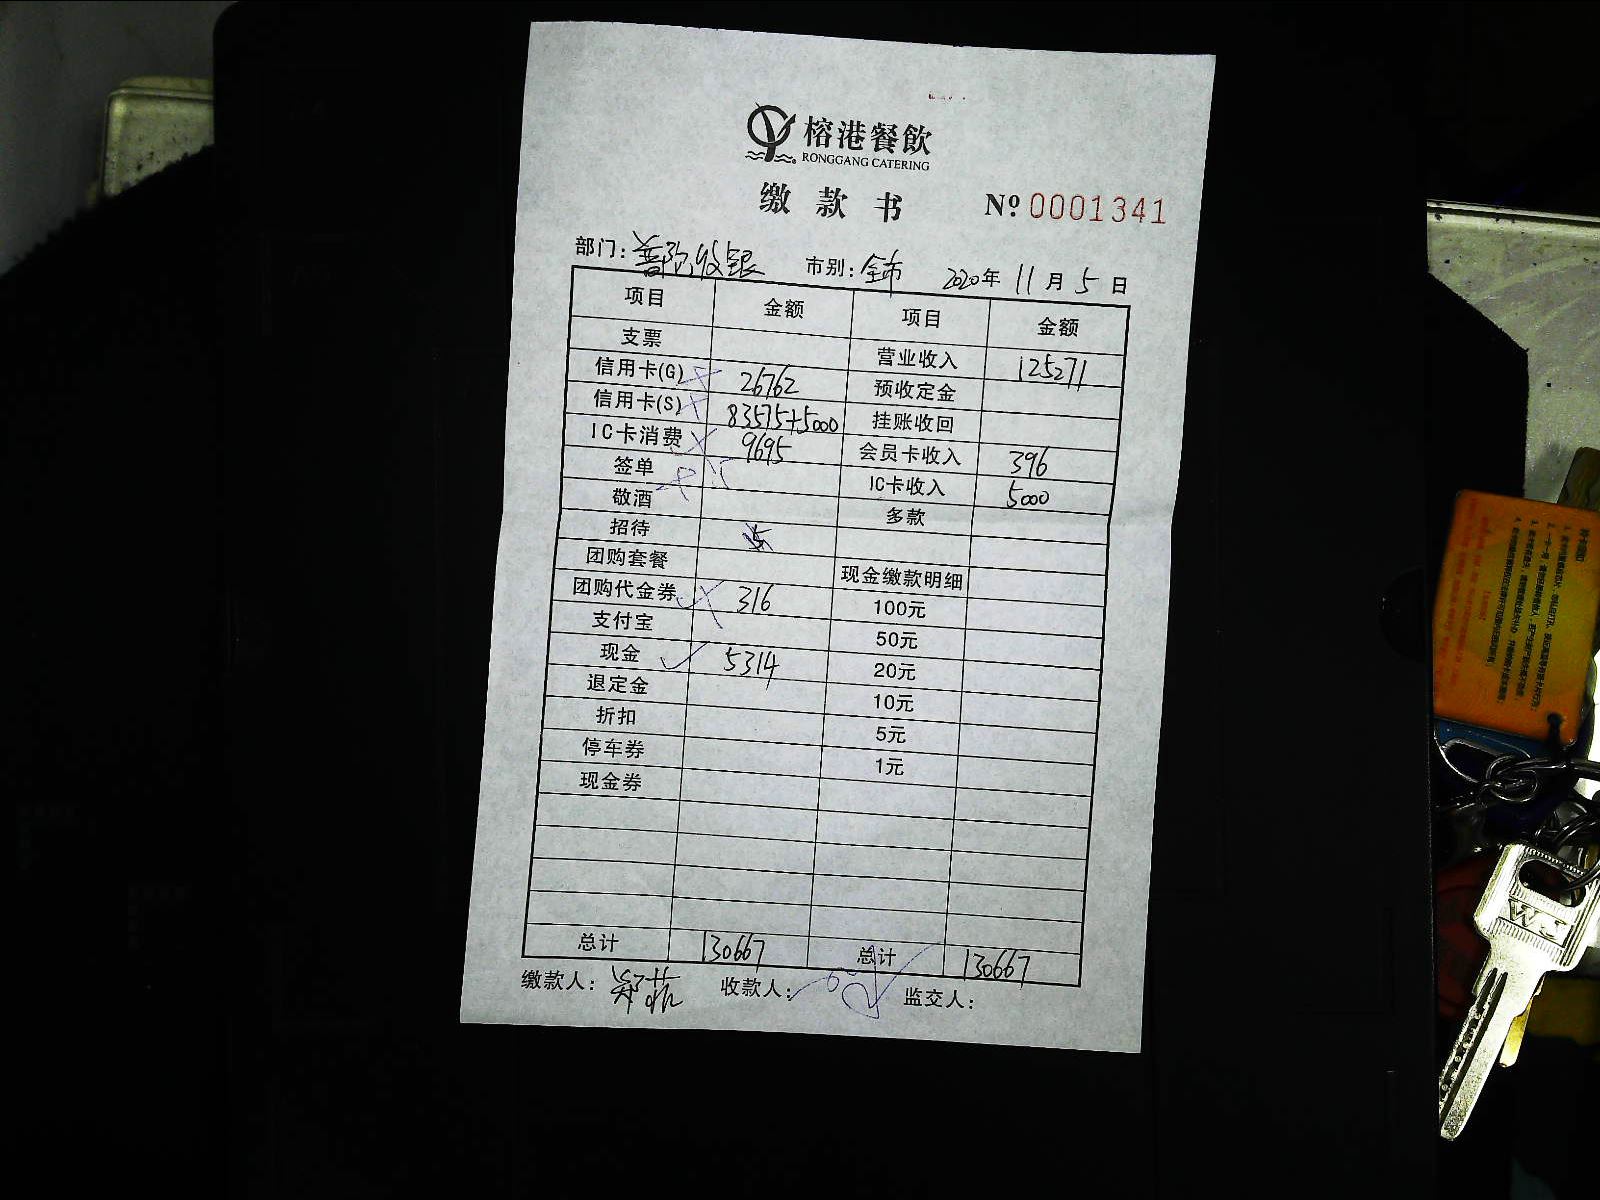 榕港餐飲
RONGGANG CATERING
缴款书 Nº 0001341
部门: 普陀收银 市别: 全市 2020年 11月 5日
项目 金额 项目 金额
支票 营业收入 125271
信用卡(G) 26762 预收定金
信用卡(S) 83575+5000 挂账收回
IC卡消费 9695 会员卡收入 396
签单 IC卡收入 5000
敬酒 多款
招待
团购套餐 现金缴款明细
团购代金券 316 100元
支付宝 50元
现金 5314 20元
退定金 10元
折扣 5元
停车券 1元
现金券
总计 130667 总计 130667
缴款人: 收款人: 监交人: